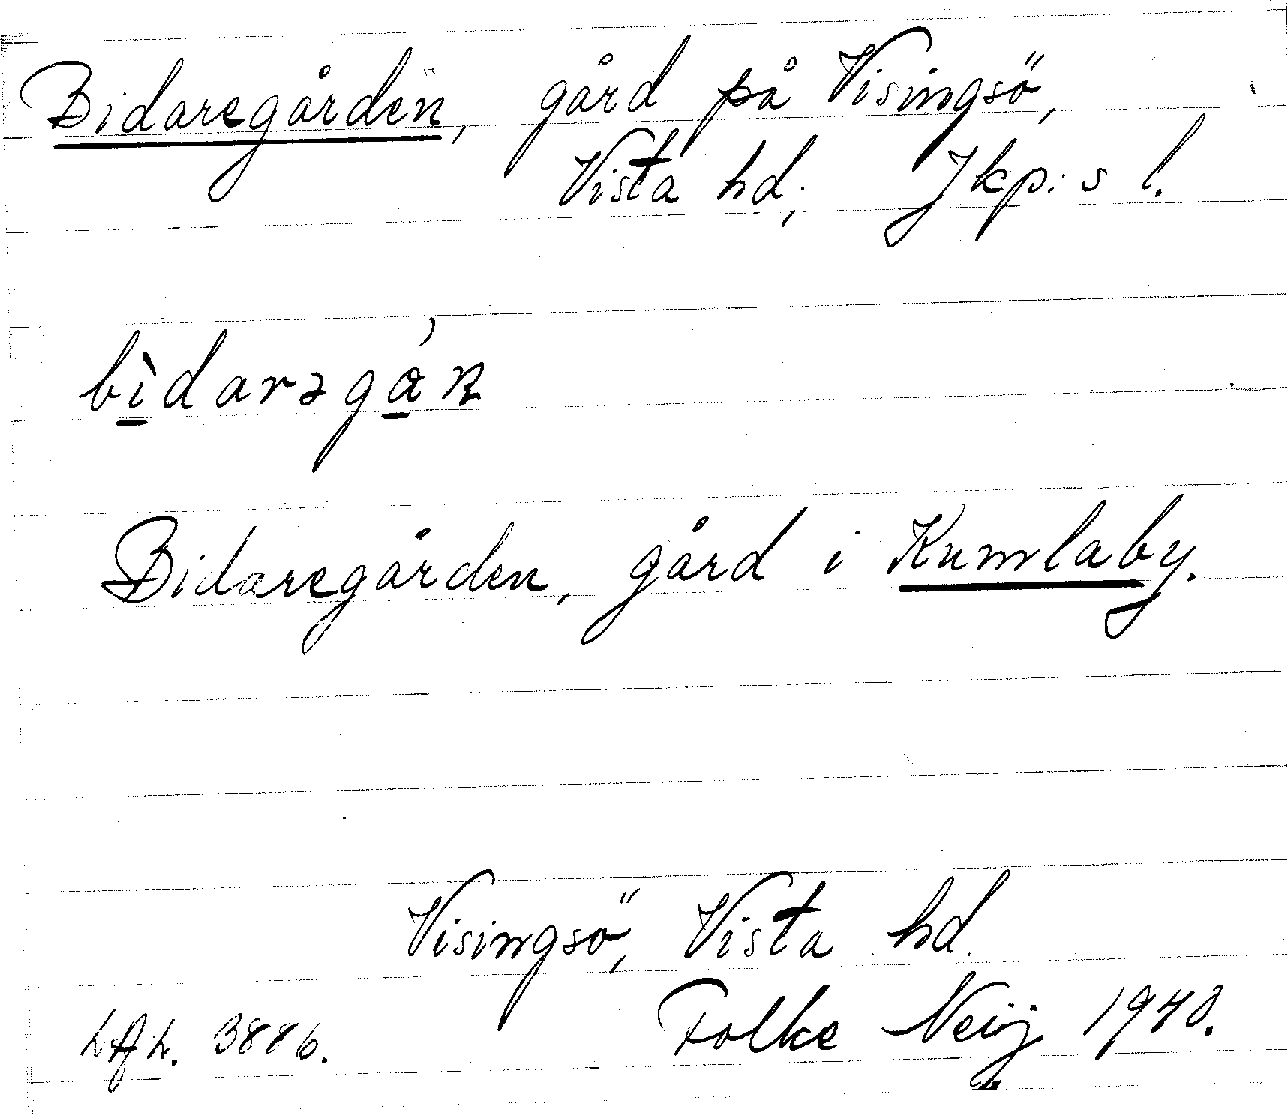 Bidaregården, gård på Visingsö,
Vista hd, Jkp:s l.
bìdarəgán
Bidaregården, gård i Kumlaby.
Visingsö, Vista hd
Folke Neij 1940.
3886.